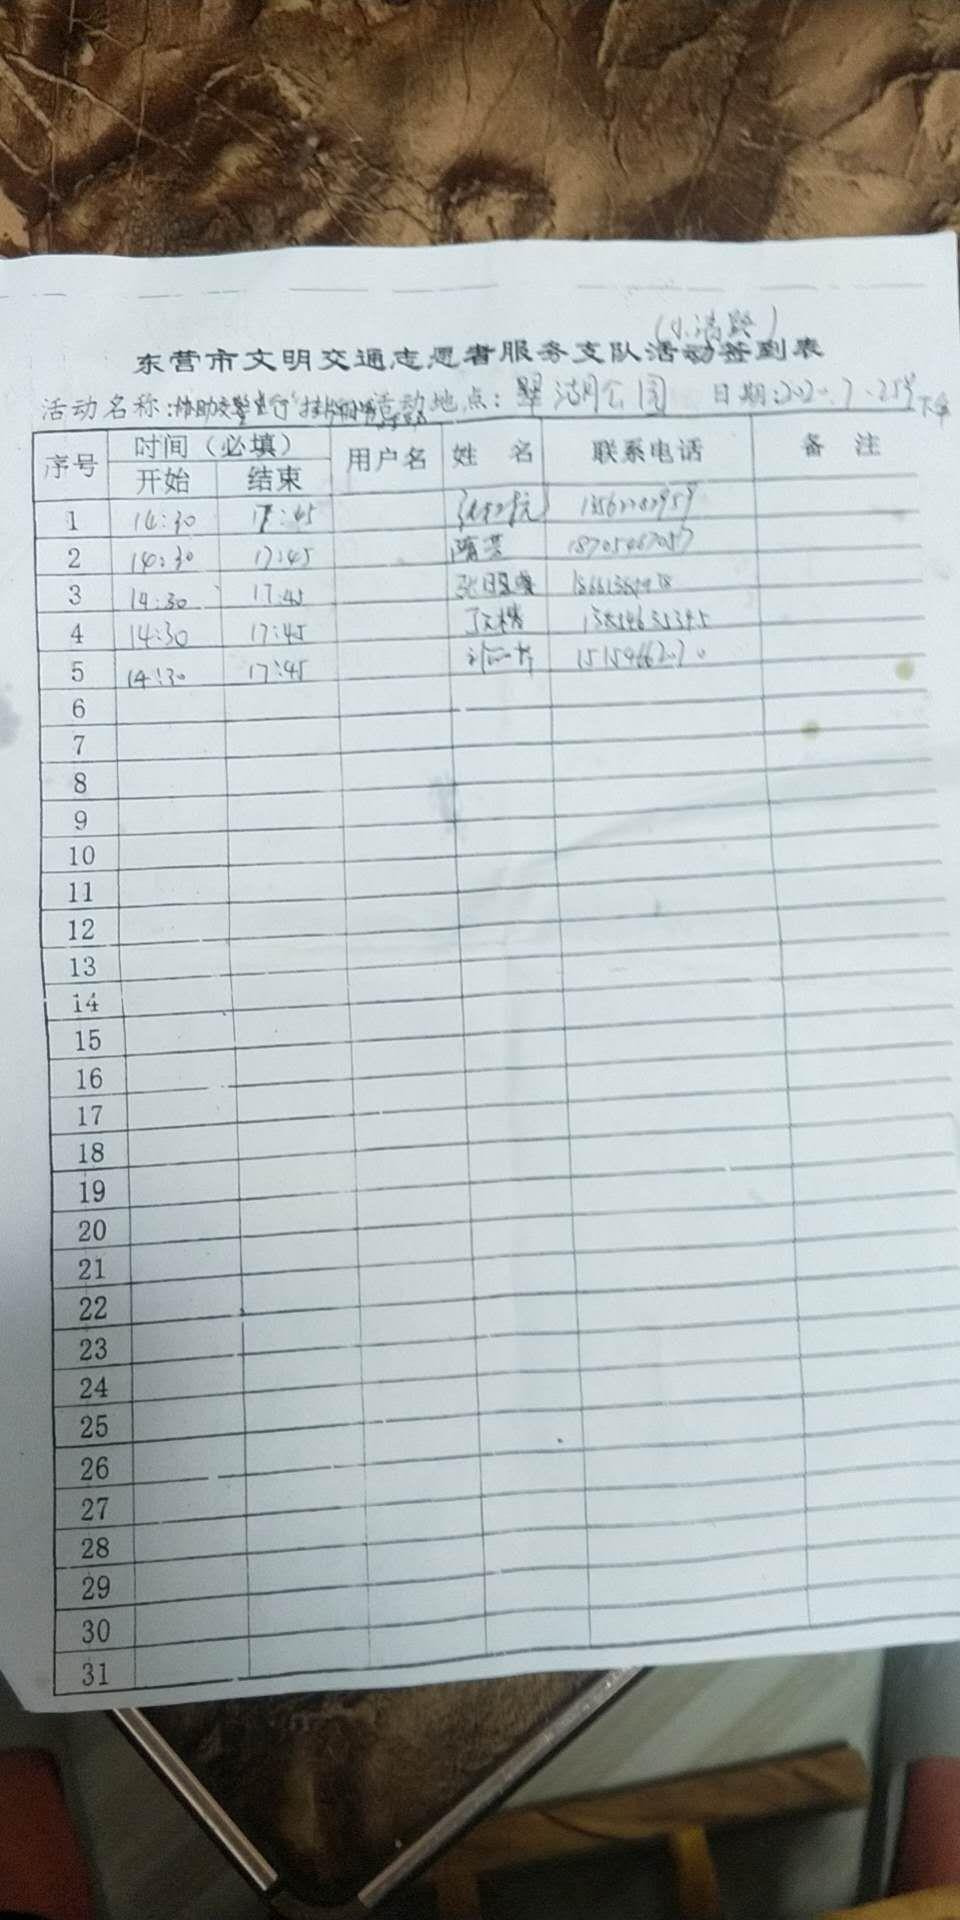 (小清路)
东营市文明交通志愿者服务支队活动签到表
活动名称:协助交警 活动地点:翠湖公园 日期:2020.7.25号下午
序号 时间(必填) 用户名 姓 名 联系电话 备 注
开始 结束
1 14:30 17:45
2 14:30 17:45 隋芸 18705467057
3 14:30 17:45
4 14:30 17:45
5 14:30 17:45
6
7
8
9
10
11
12
13
14
15
16
17
18
19
20
21
22
23
24
25
26
27
28
29
30
31